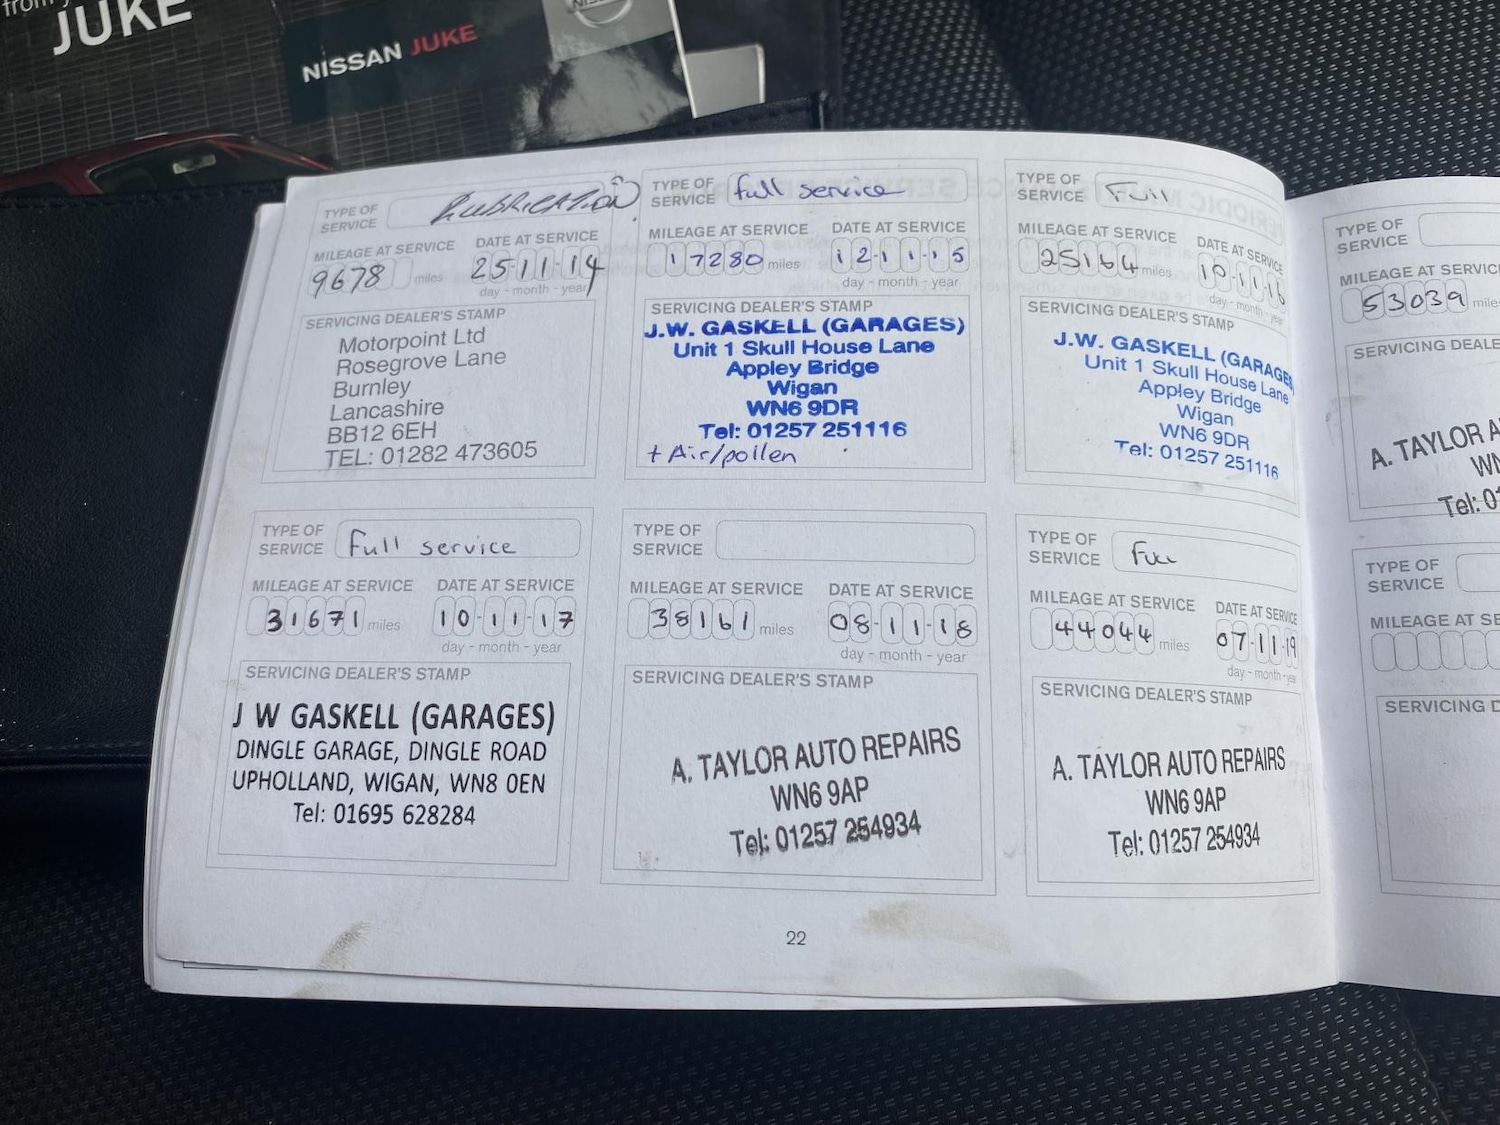 from
JUKE
NISSAN JUKE
TYPE OF
SERVICE
LUBRICATION
MILEAGE AT SERVICE
DATE AT SERVICE
9678 miles
25-11-14
day - month - year
SERVICING DEALER'S STAMP
Motorpoint Ltd
Rosegrove Lane
Burnley
Lancashire
BB12 6EH
TEL: 01282 473605
TYPE OF
SERVICE
full service
MILEAGE AT SERVICE
DATE AT SERVICE
17280 miles
12-11-15
day - month - year
SERVICING DEALER'S STAMP
J.W. GASKELL (GARAGES)
Unit 1 Skull House Lane
Appley Bridge
Wigan
WN6 9DR
Tel: 01257 251116
+ Air/pollen
TYPE OF
SERVICE
Full
MILEAGE AT SERVICE
DATE AT SERVICE
25164 miles
10-11-16
day - month - year
SERVICING DEALER'S STAMP
J.W. GASKELL (GARAGES
Unit 1 Skull House Lane
Appley Bridge
Wigan
WN6 9DR
Tel: 01257 251116
TYPE OF
SERVICE
Full service
MILEAGE AT SERVICE
DATE AT SERVICE
31671 miles
10-11-17
day - month - year
SERVICING DEALER'S STAMP
J W GASKELL (GARAGES)
DINGLE GARAGE, DINGLE ROAD
UPHOLLAND, WIGAN, WN8 0EN
Tel: 01695 628284
TYPE OF
SERVICE
MILEAGE AT SERVICE
DATE AT SERVICE
38161 miles
08-11-18
day - month - year
SERVICING DEALER'S STAMP
A. TAYLOR AUTO REPAIRS
WN6 9AP
Tel: 01257 254934
TYPE OF
SERVICE
Full
MILEAGE AT SERVICE
DATE AT SERVICE
44044 miles
07-11-19
day - month - year
SERVICING DEALER'S STAMP
A. TAYLOR AUTO REPAIRS
WN6 9AP
Tel: 01257 254934
22
TYPE OF
SERVICE
MILEAGE AT SERVIC
53039 miles
SERVICING DEALE
A. TAYLOR A
WN
Tel: 0
TYPE OF
SERVICE
MILEAGE AT SE
SERVICING D